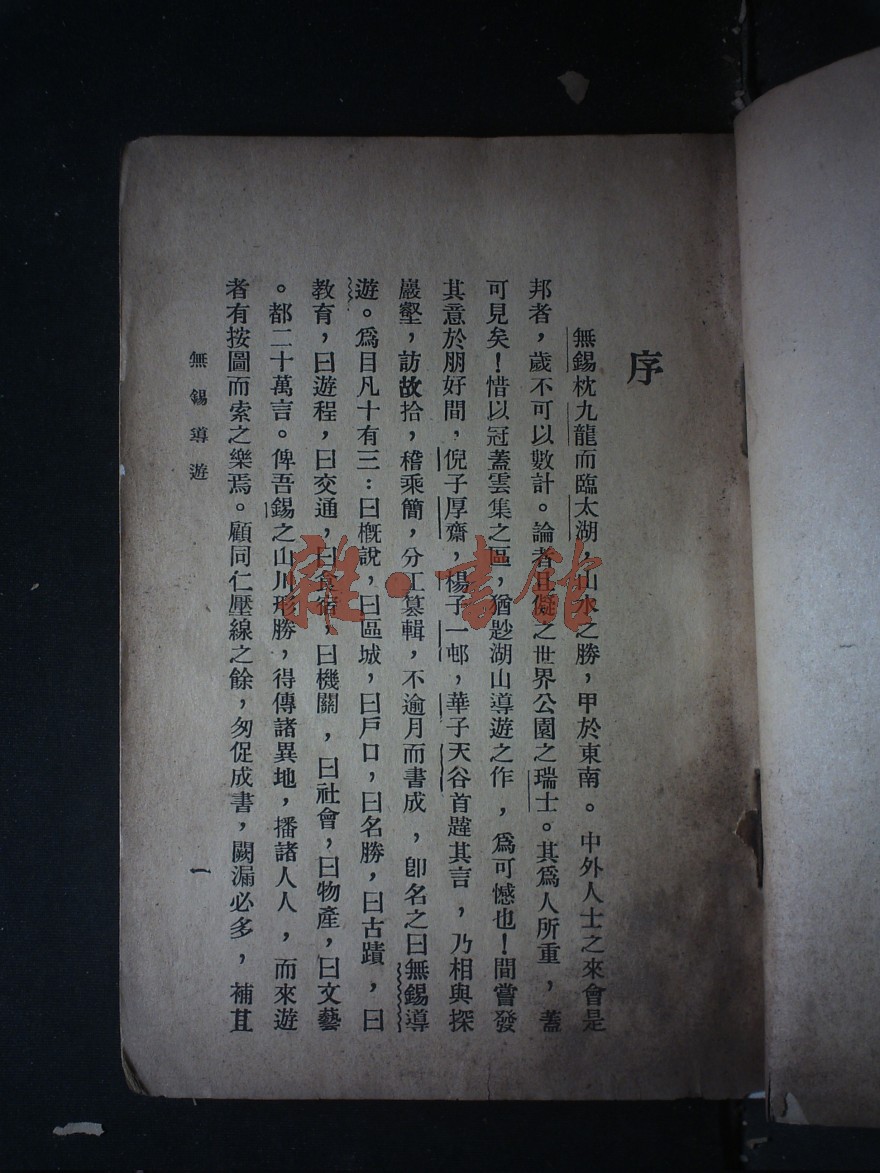 序
無錫枕九龍而臨太湖，山水之勝，甲於東南。中外人士之來會是
邦者，歲不可以數計。論者且儗之世界公園之瑞士。其爲人所重，蓋
可見矣！惜以冠蓋雲集之區，猶尟湖山導遊之作，爲可憾也！間嘗發
其意於朋好間，倪子厚齋，楊子一邨，華子天谷首韙其言，乃相與探
巖壑，訪故拾，稽乘簡，分工纂輯，不逾月而書成，卽名之曰無錫導
遊。爲目凡十有三：曰槪說，曰區域，曰戶口，曰名勝，曰古蹟，曰
教育，曰遊程，曰交通，曰食宿，曰機關，曰社會，曰物產，曰文藝
。都二十萬言。俾吾錫之山川形勝，得傳諸異地，播諸人人，而來遊
者有按圖而索之樂焉。顧同仁壓線之餘，匆促成書，闕漏必多，補苴
無錫導遊
一
雜·書館